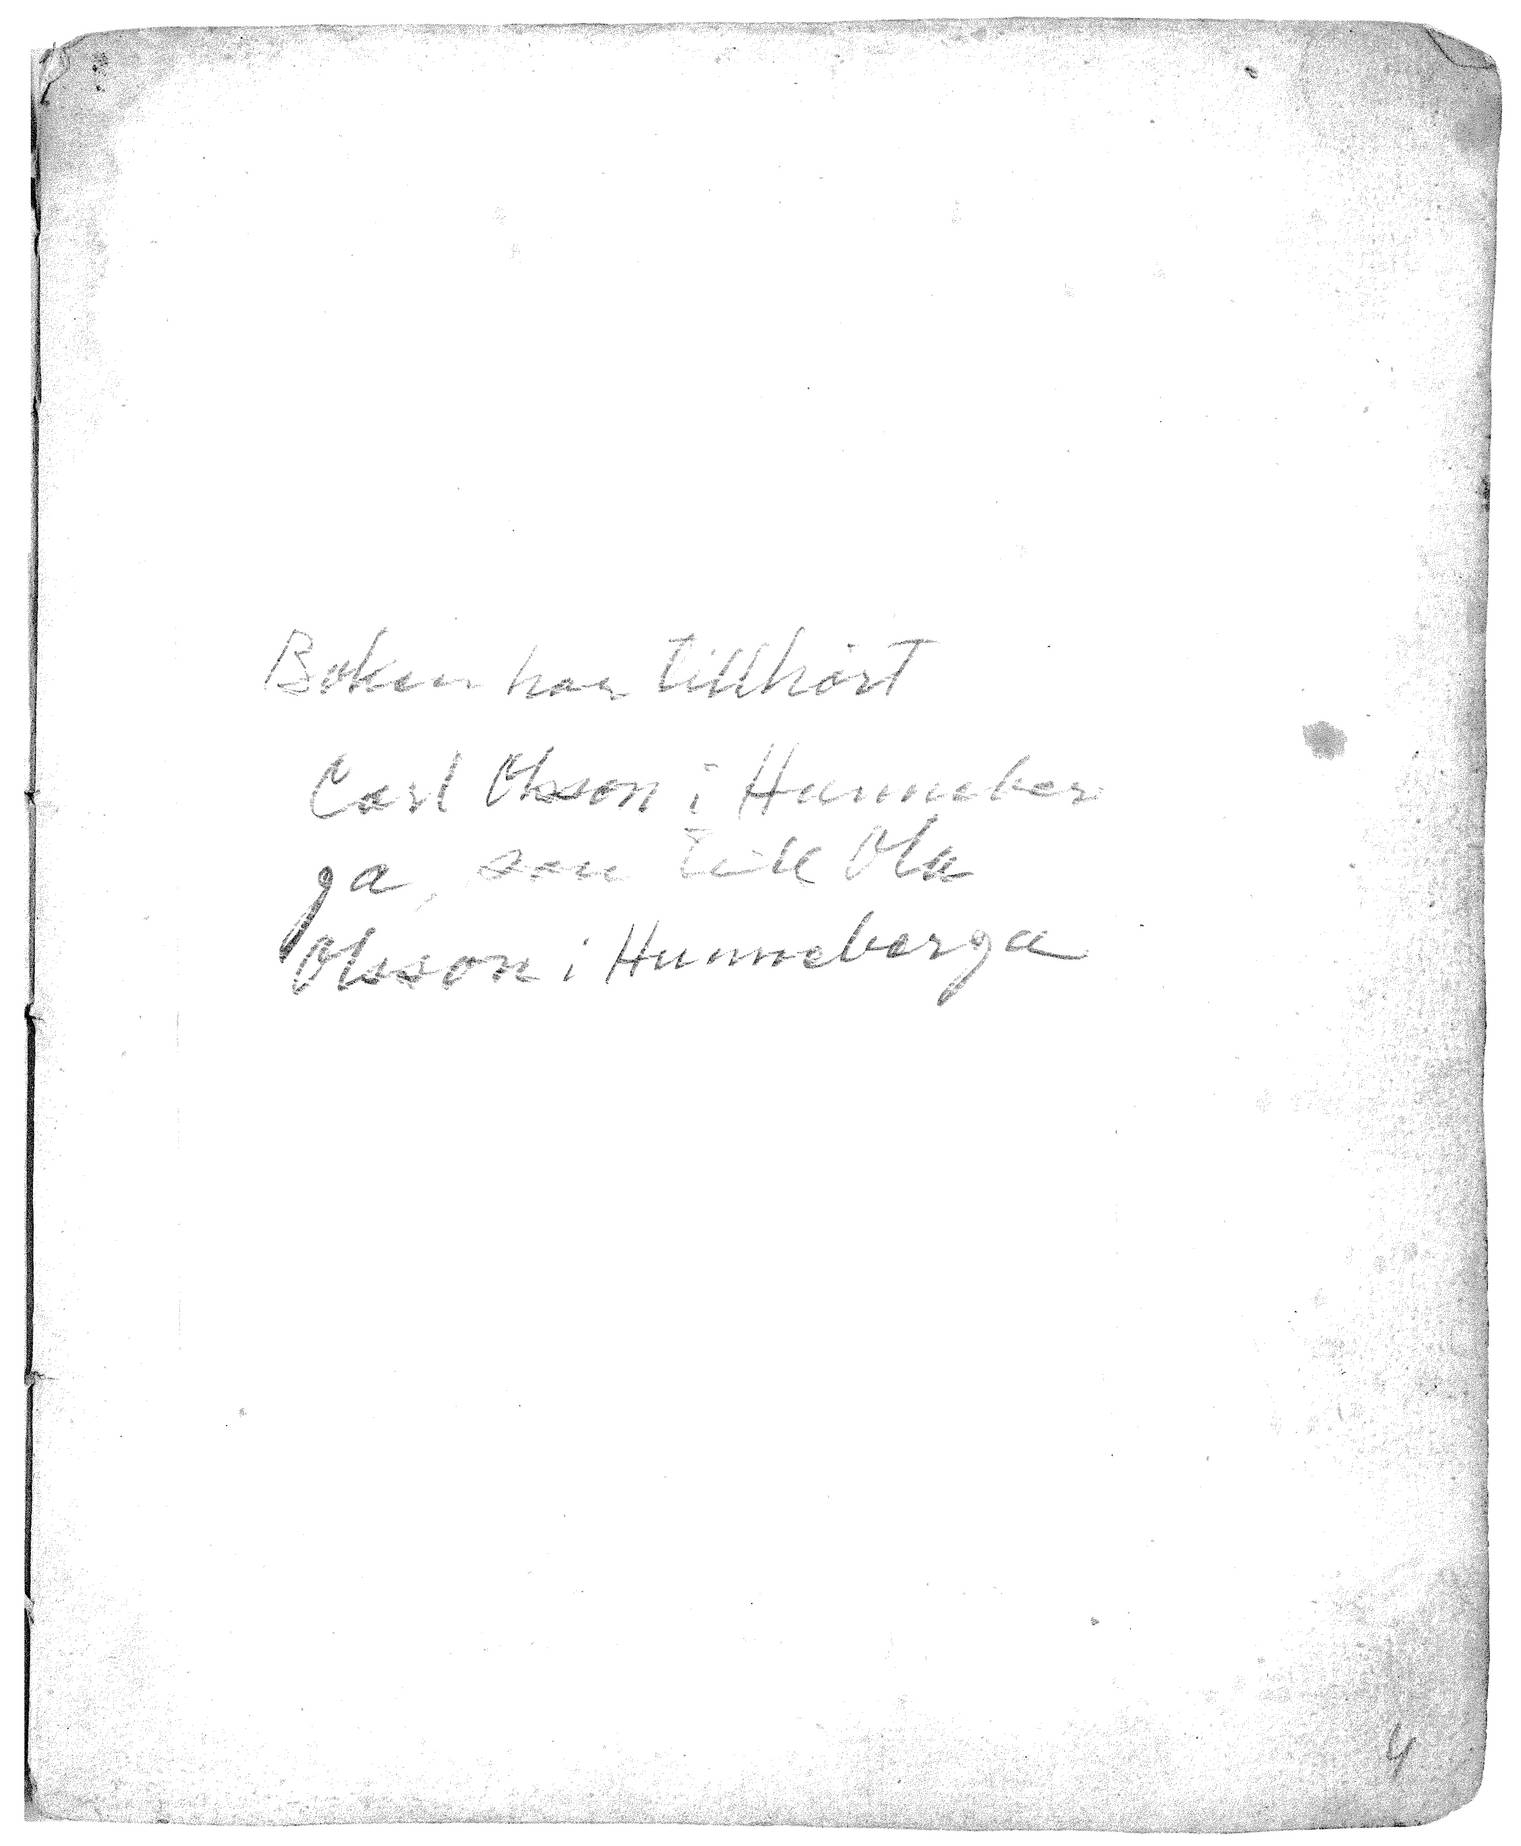 Boken har tillhört
Carl Olsson i Hunneber
ga, son till Ola
Olsson i Hunneberga
4